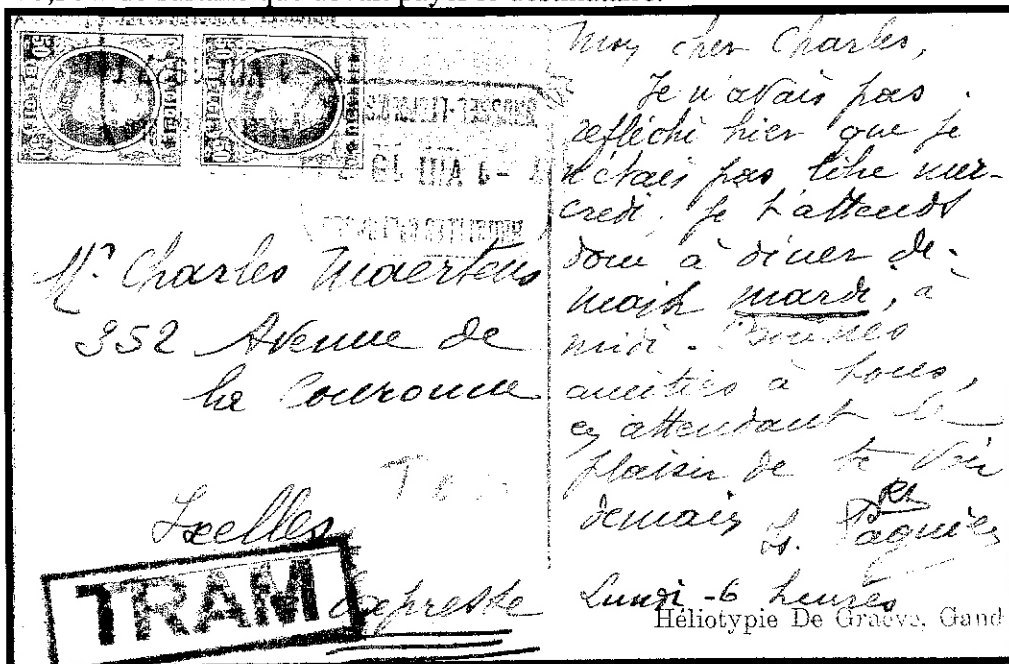 Mr Charles Maertens
352 Avenue de
la Couronne
Ixelles
Expresse
TRAM
Mon cher Charles,
Je n'avais pas
réfléchi hier que je
n'étais pas libre mer-
credi. Je t'attends
donc à dîner de-
main mardi, à
midi. Bonnes
amitiés à tous,
en attendant le
plaisir de te voir
demain
Lundi - 6 heures
Héliotypie De Graeve, Gand